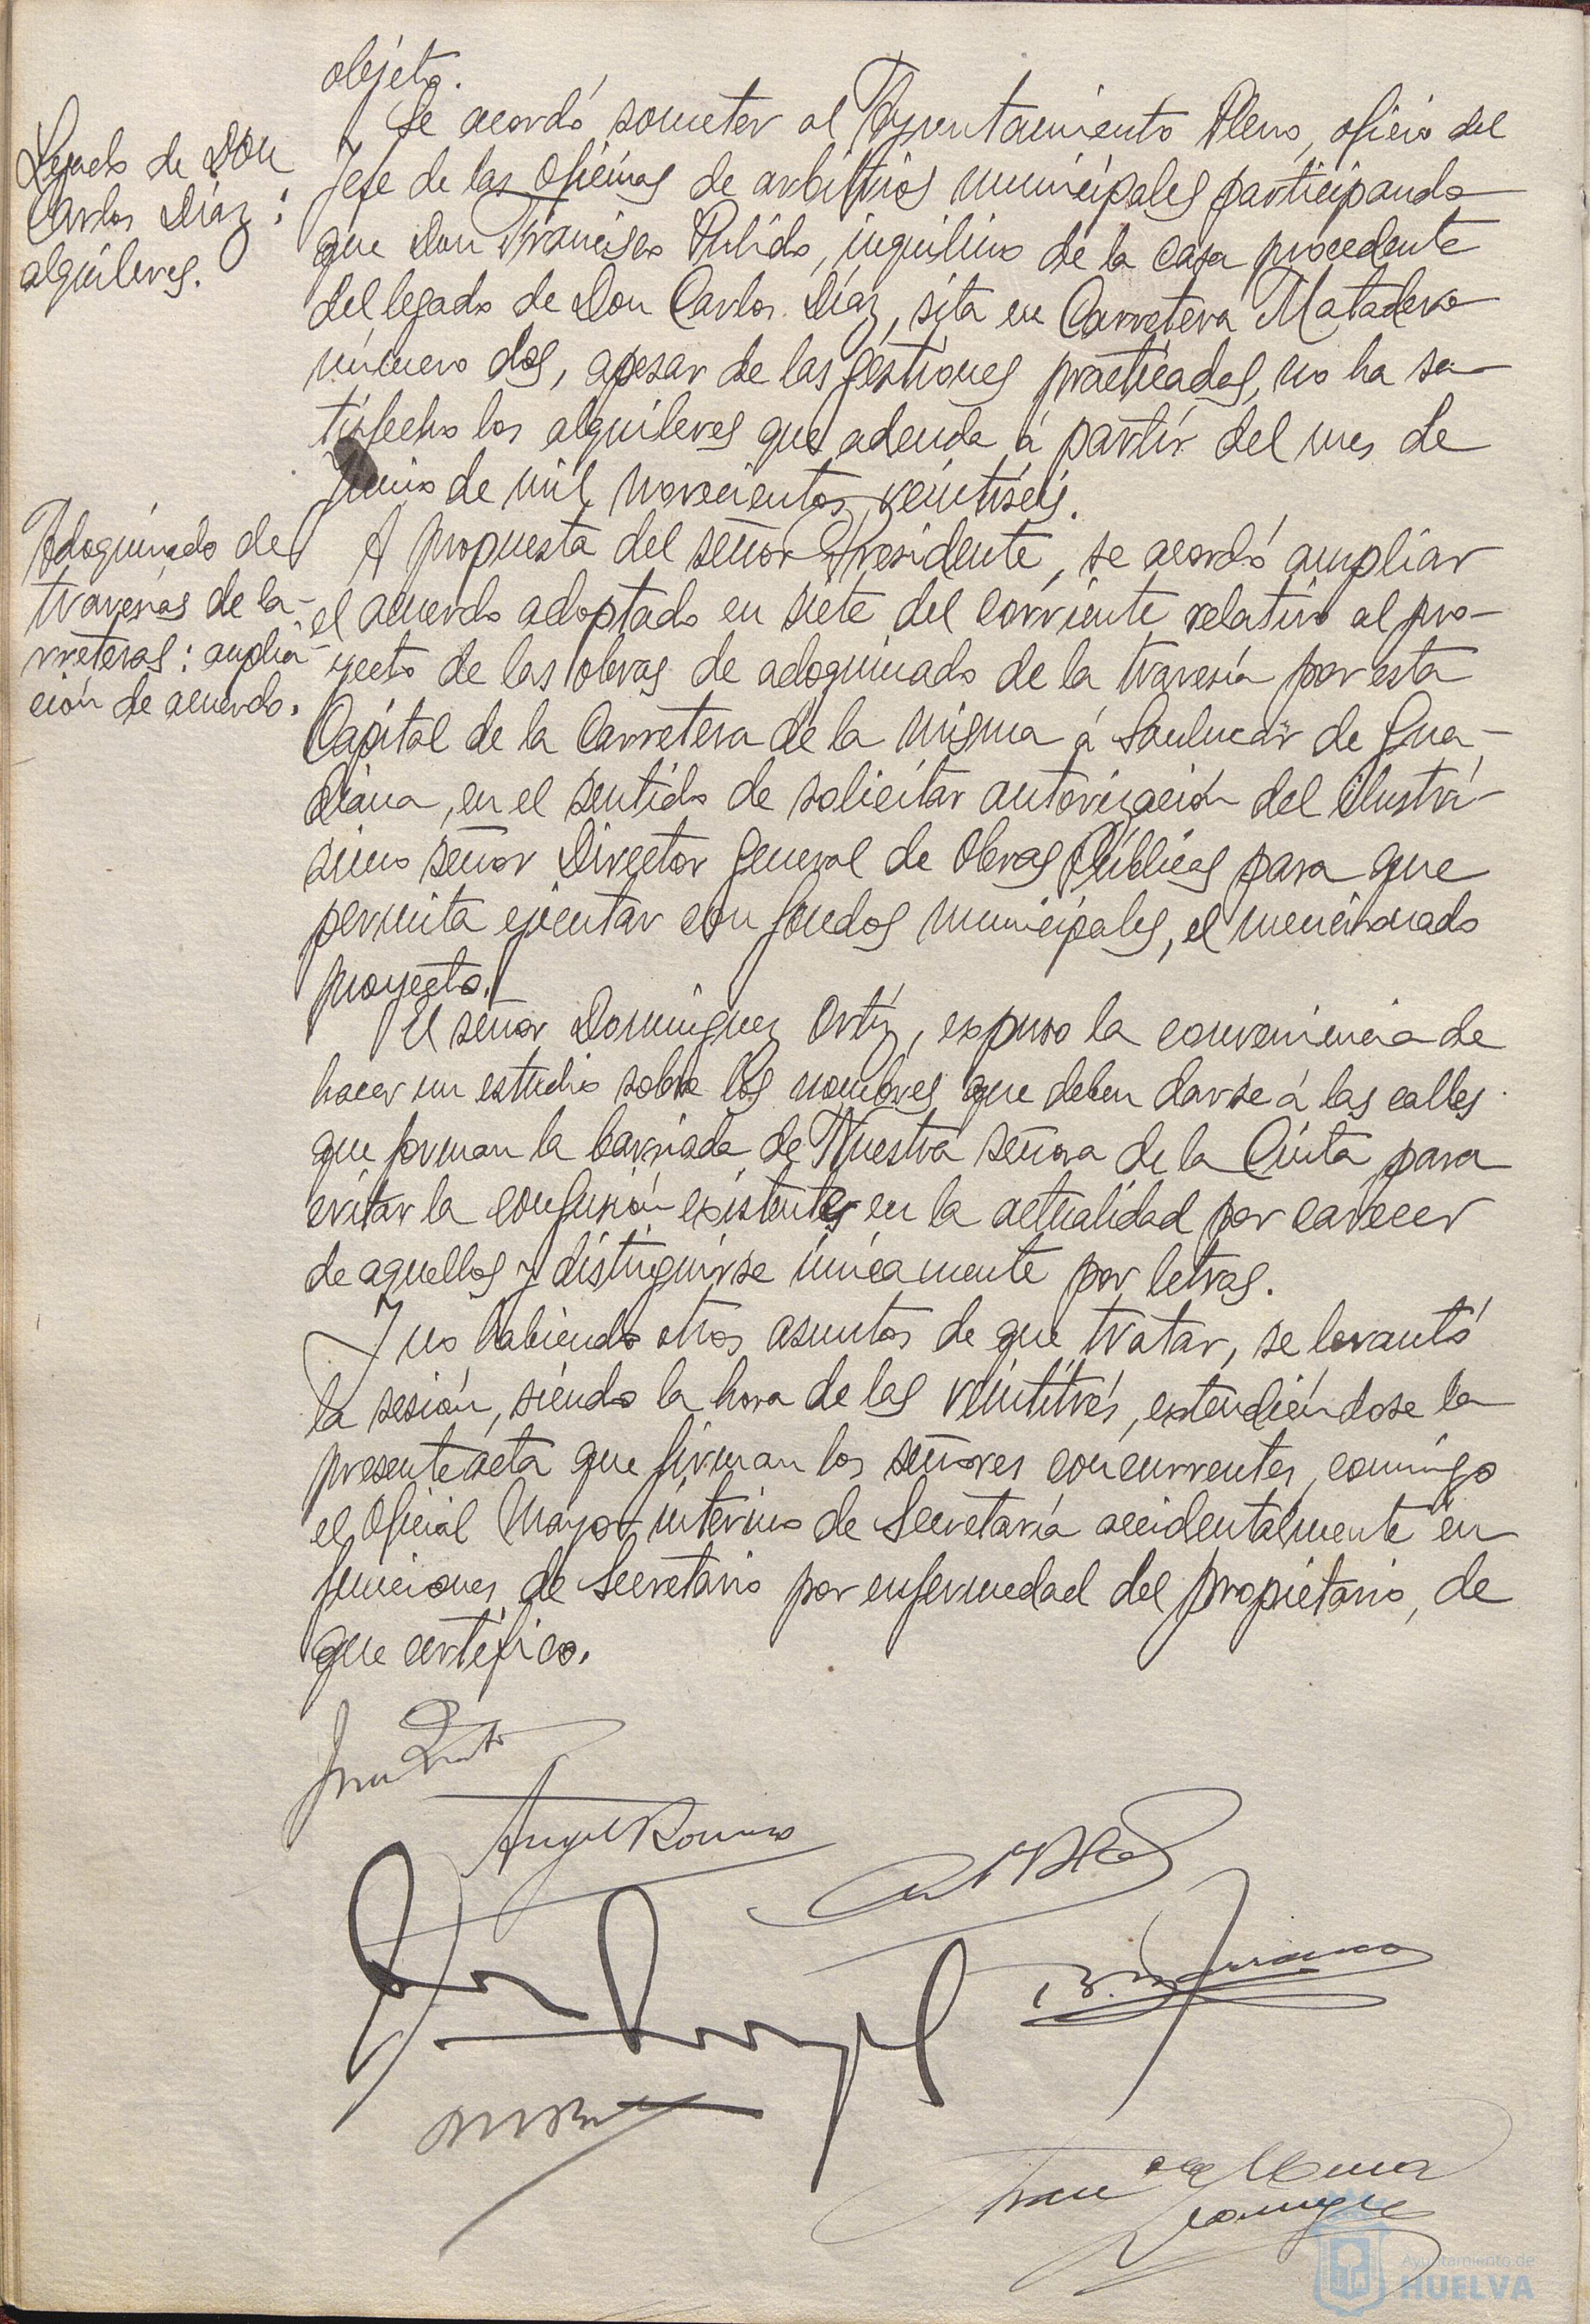 objeto.
Legado de Don
Carlos Díaz:
alquileres.
Se acordó someter al Ayuntamiento Pleno, oficio del
Jefe de las Oficinas de arbitrios municipales participando
que Don Francisco Pulido, inquilino de la casa procedente
del legado de Don Carlos Díaz, sita en Carretera Matadero
número dos, apesar de las gestiones practicadas, no ha sa-
tisfecho los alquileres que adeuda á partir del mes de
Junio de mil novecientos veintiséis.
Adoquinado de
travesías de ca-
rreteras: amplia-
ción de acuerdo.
A propuesta del señor Presidente, se acordó ampliar
el acuerdo adoptado en siete del corriente relativo al pro-
yecto de las obras de adoquinado de la travesía por esta
Capital de la Carretera de la misma á Sanlucar de Gua-
diana, en el sentido de solicitar autorización del Ilustrí-
simo señor Director General de Obras Públicas para que
permita ejecutar con fondos municipales, el mencionado
proyecto.
El señor Domínguez Ortíz, expuso la conveniencia de
hacer un estudio sobre los nombres que deben darse á las calles
que forman la barriada de Nuestra señora de la Cinta para
evitar la confusión existente en la actualidad por carecer
de aquellos y distinguirse únicamente por letras.
Y no habiendo otros asuntos de que tratar, se levantó
la sesión, siendo la hora de las veintitrés, extendiéndose la
presente acta que firman los señores concurrentes, conmigo
el Oficial Mayor interino de Secretaría accidentalmente en
funciones de Secretario por enfermedad del propietario, de
que certifico.
Angel Romero
Ayuntamiento de
HUELVA